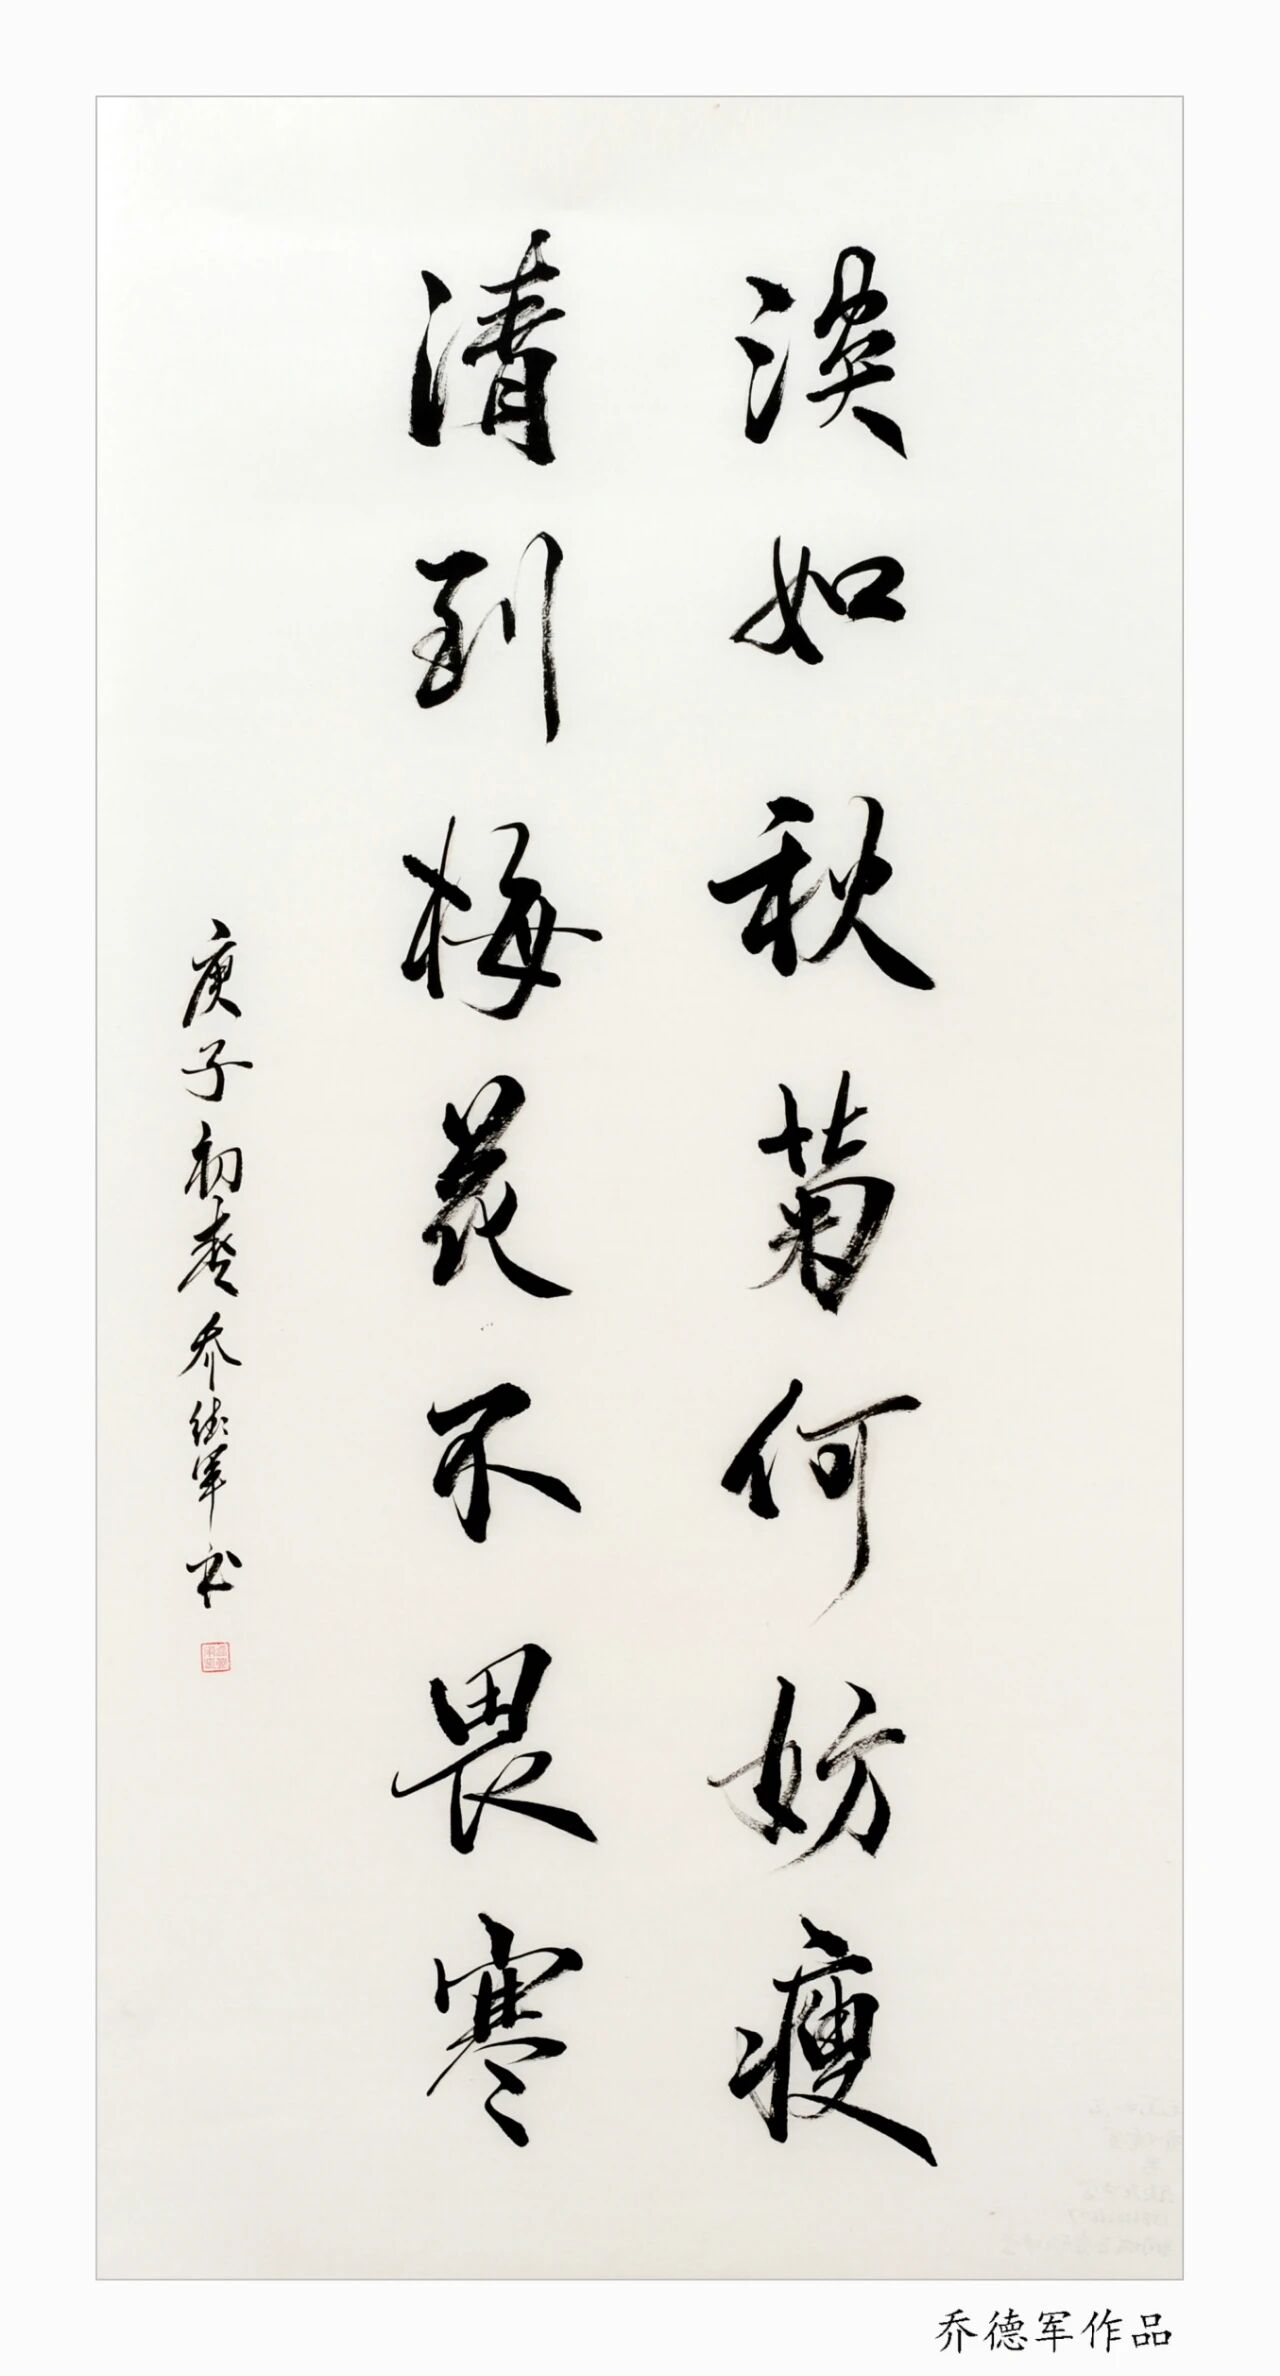 淡如秋菊何妨瘦
清到梅花不畏寒
庚子初春乔德军书
乔德军作品